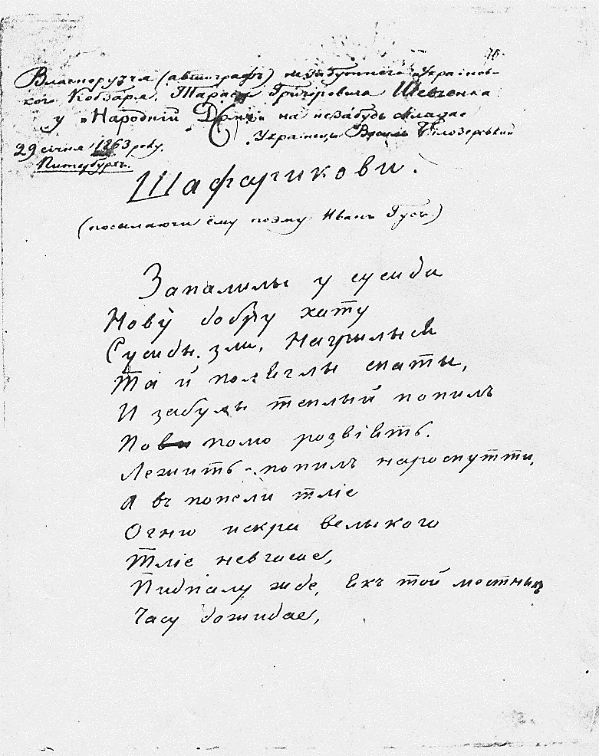 Власноруччя (автографъ) незабутнёго Украінсь-
кого Кобзаря, Тараса Григоровича Шевченка
у "Народній Дімъ" на незабудь оддае
Украінець Василь Білозерський
29 січня 1863 року.
Питербургъ.
Шафарикови.
(посилаючи ёму поэму Иванъ Гусъ)
Запалилы у сусиды
Нову добру хату
Сусиды зли, нагрилыся
Та й поляглы спаты,
И забулы теплый попилъ
По полю розвіять.
Лежить попилъ на роспутти,
А въ попели тліе
Огню искра велыкого
Тліе невгасае,
Пидпалу жде, якъ той местныкъ
Часу дожидае,